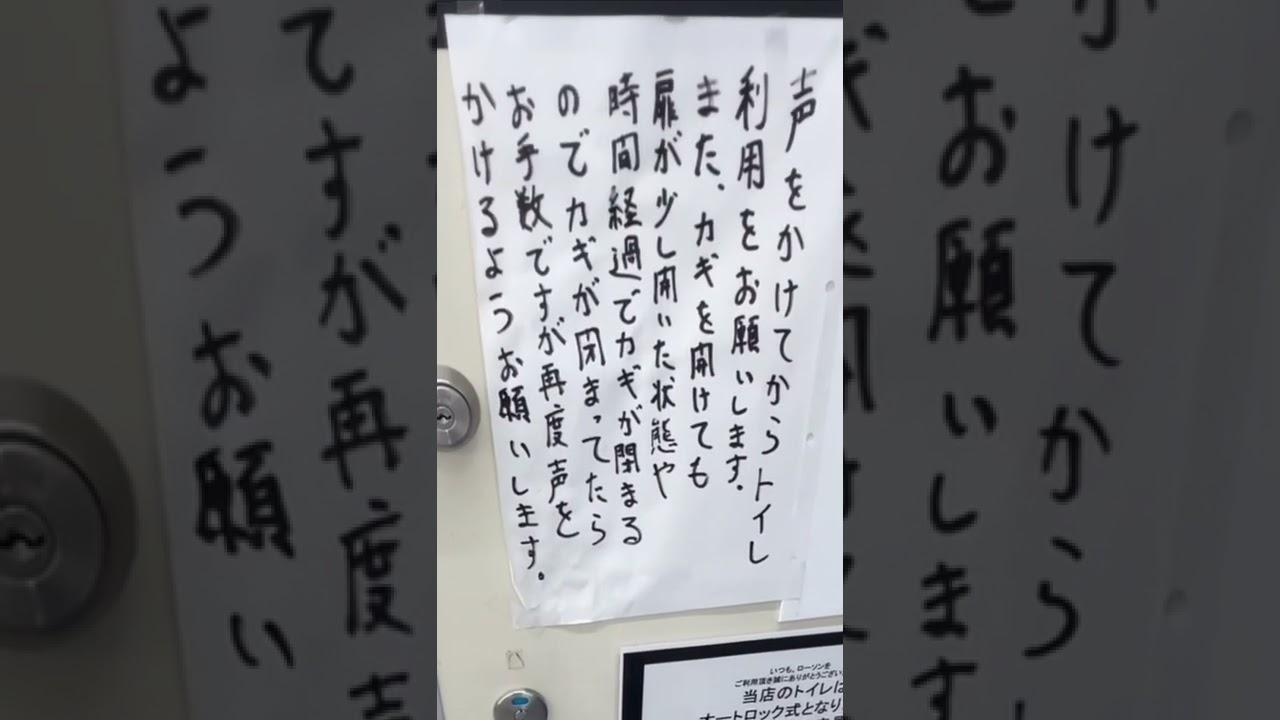 声をかけてからトイレ
利用をお願いします.
また、カギを開けても
扉が少し開いた状態や
時間経過でカギが閉まる
のでカギが閉まってたら
お手数ですが再度声を
かけるようお願いします。
いつも、ローソンを
ご利用頂き誠にありがとうござい
当店のトイレは
オートロック式となり